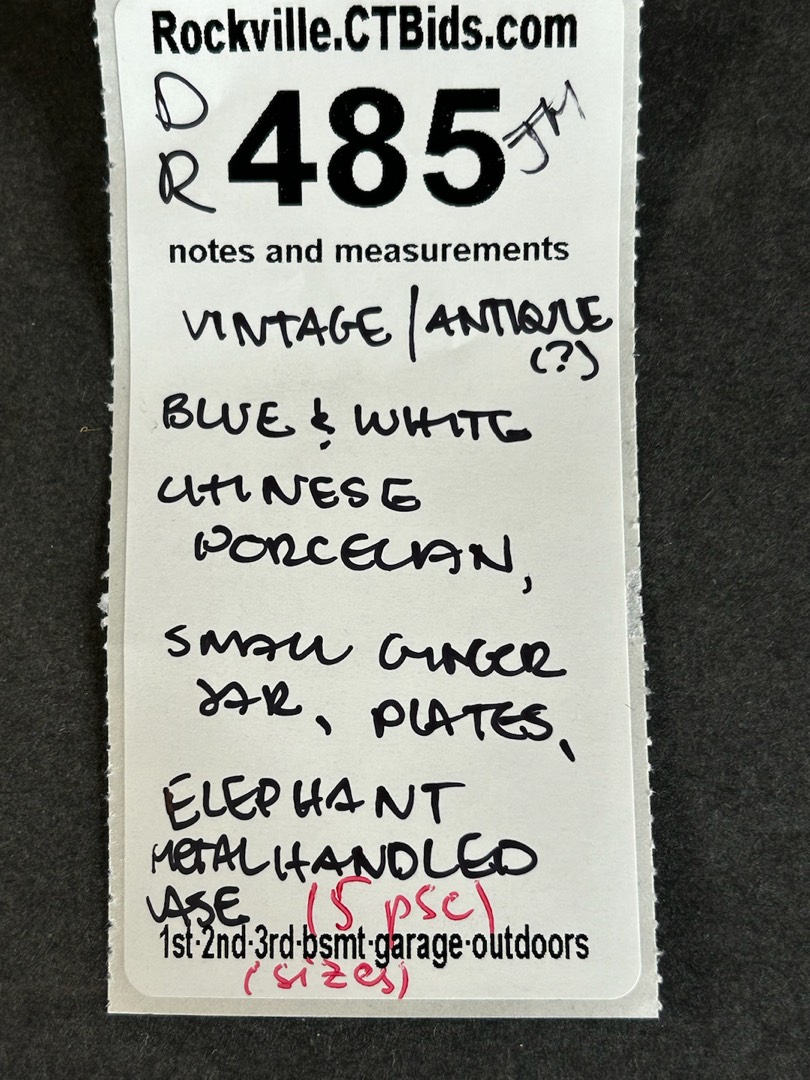 Rockville.CTBids.com
D
R
485
JM
notes and measurements
VINTAGE | ANTIQUE
(?)
BLUE & WHITE
CHINESE
PORCELIAN,
SMALL GINGER
JAR, PLATES,
ELEPHANT
METAL HANDLED
VASE (5 psc)
1st·2nd·3rd·bsmt·garage·outdoors
(sizes)